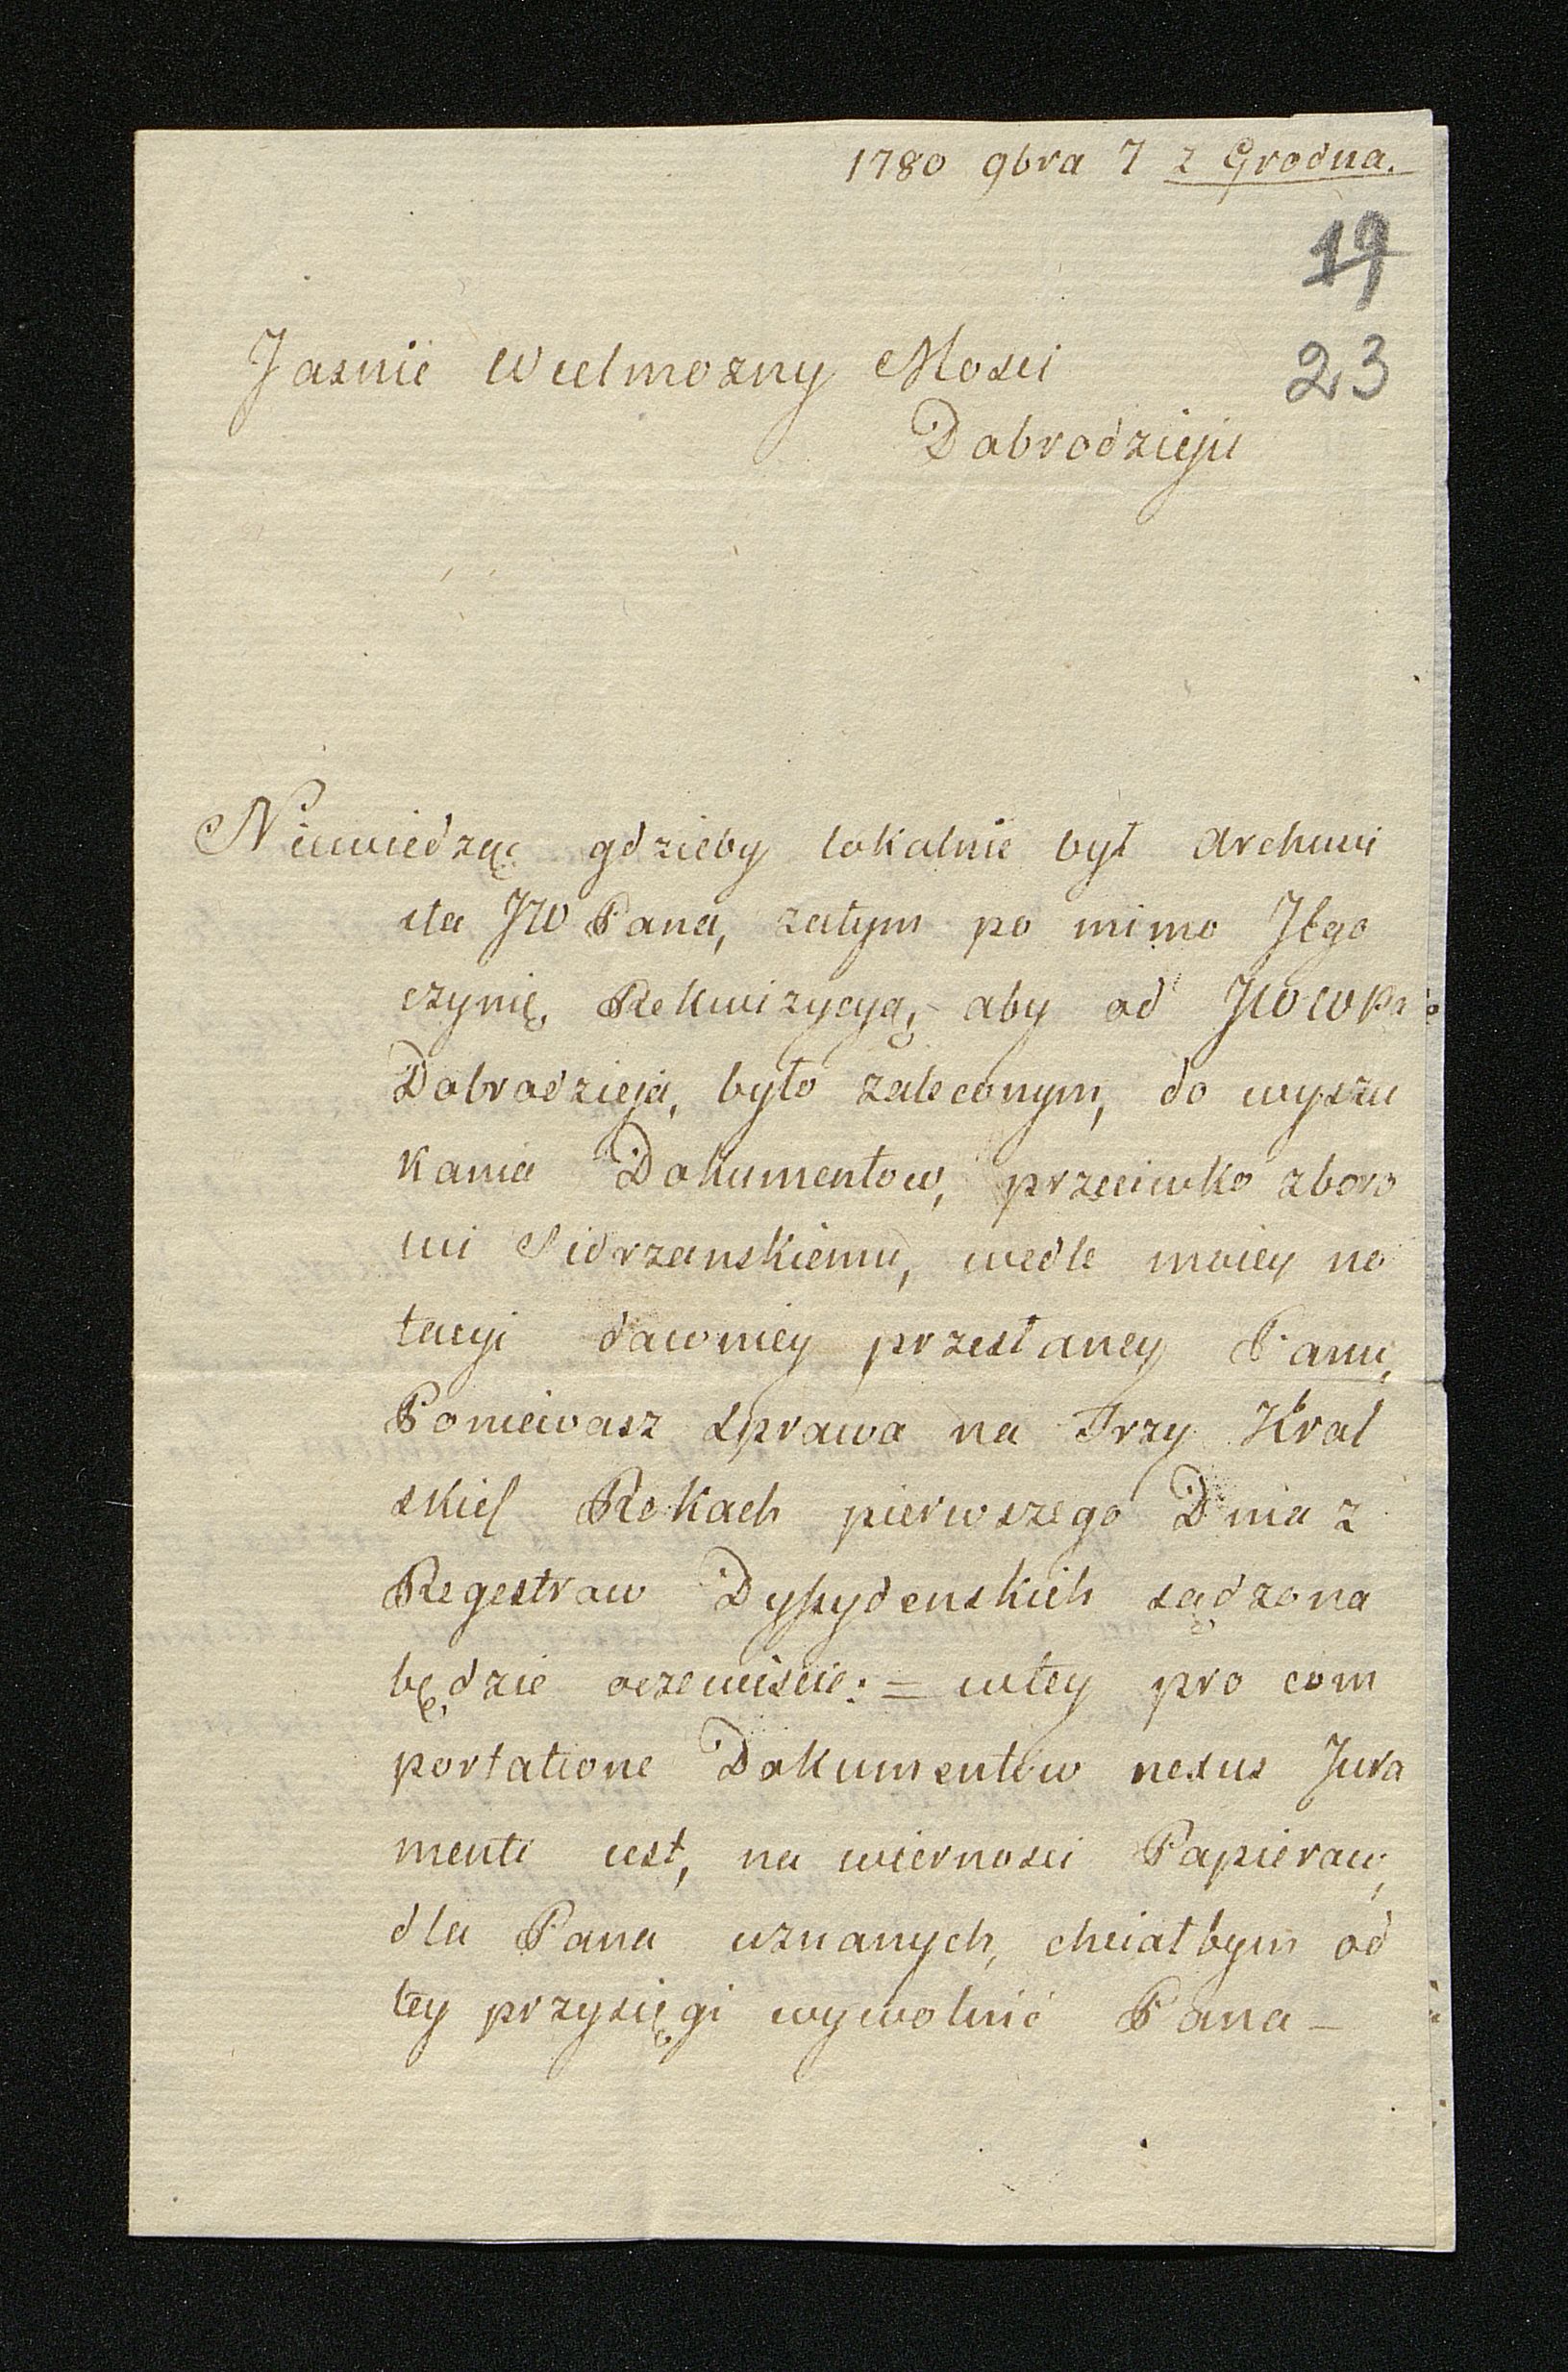 1780 9bra 7 z Grodna.
19
23
Jasnie Wielmozny Mosci
Dobrodzieju
Niewiedząc gdzieby lokalnie był Archiwi
sta JW Pana, zatym po mimo Jego
czynię Rekwizycyą, aby od JWWPa
Dobrodzieja, było zaleconym, do wyszu
kania Dokumentow, przeciwko zboro
wi Sidrzanskiemu, wedle moiey no
tacyi dawniey przesłaney Panu,
Poniewasz sprawa na Trzy Krol
skich Rokach pierwszego Dnia z
Regestrow Dyssydenskich sądzona
będzie oczewiscie: = wtey pro com
portatione Dokumentow nexus Jura
menti iest, na wiernosci Papierow,
dla Pana uznanych, chciałbym od
tey przysięgi wywolnić Pana –